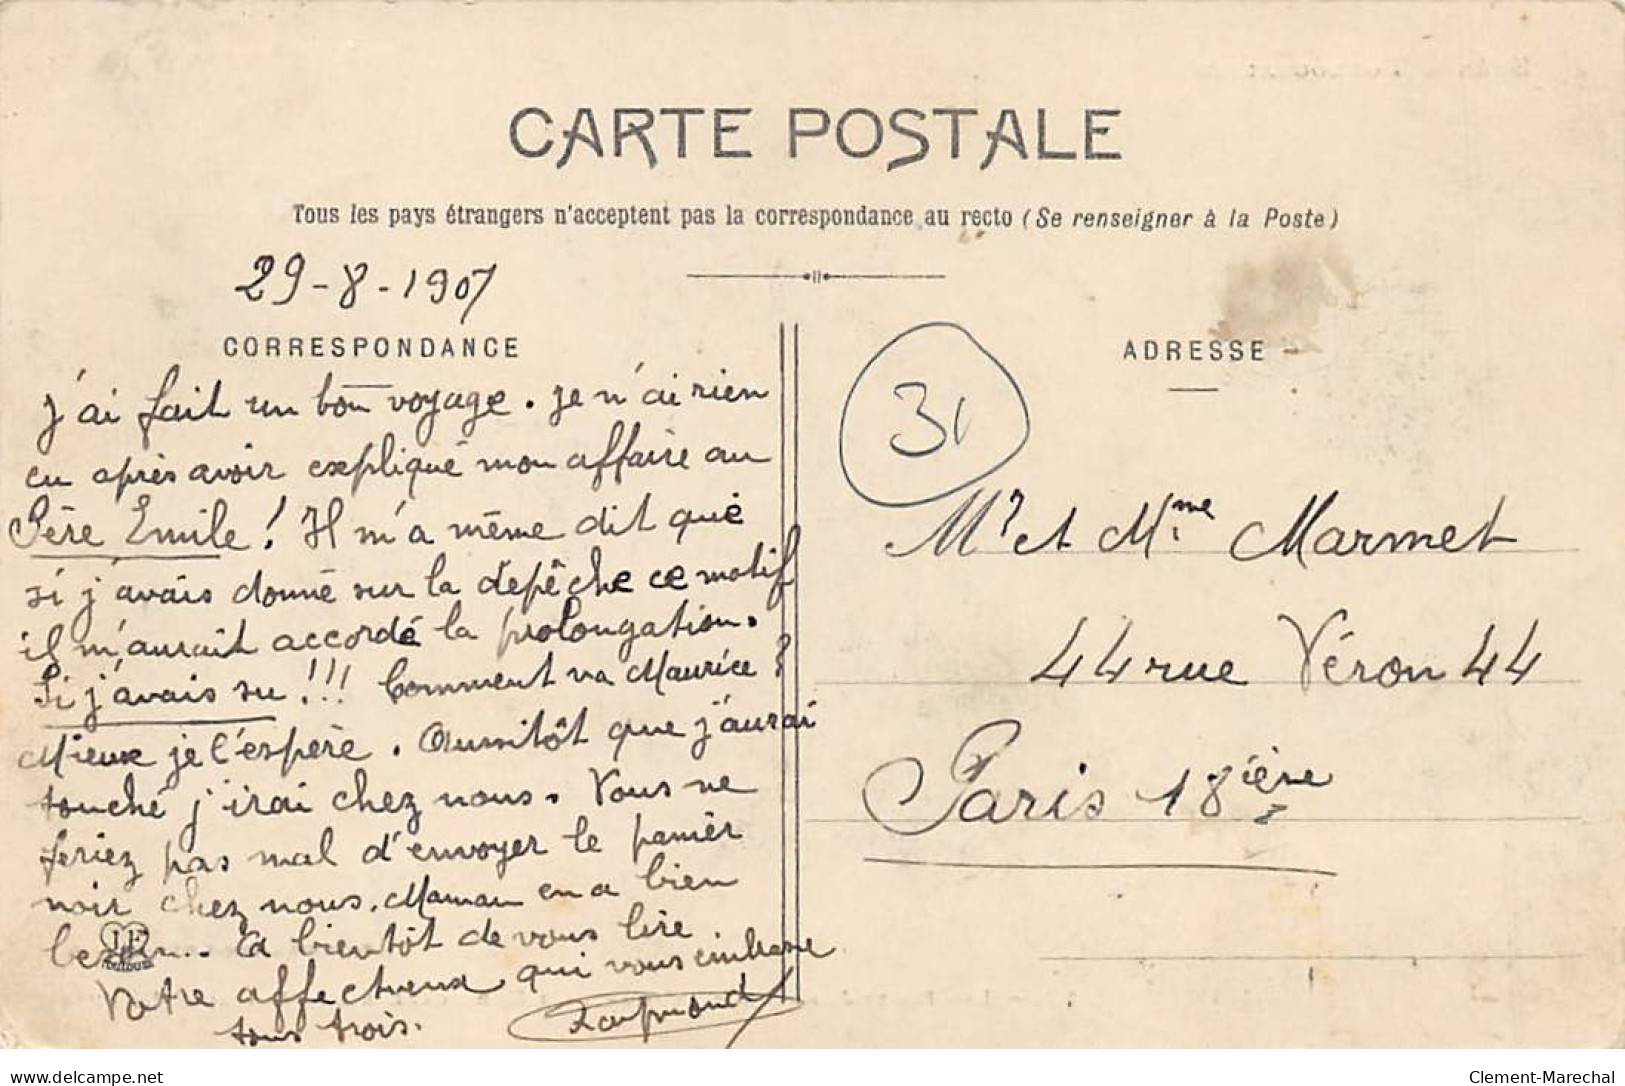 CARTE POSTALE
Tous les pays étrangers n'acceptent pas la correspondance au recto (Se renseigner à la Poste)
29-8-1907
CORRESPONDANCE
J'ai fait un bon voyage. Je n'ai rien
eu après avoir expliqué mon affaire au
Père Emile! Il m'a même dit que
si j'avais donné sur la dépêche ce motif
il m'aurait accordé la prolongation.
Si j'avais su!!! Comment va Maurice?
Mieux je l'espère. Aussitôt que j'aurai
touché j'irai chez nous. Vous ne
feriez pas mal d'envoyer le panier
noir chez nous. Maman en a bien
besoin.. A bientôt de vous lire
Votre affectueux qui vous embrasse
tous trois. Raymond
ADRESSE
31
Mr et Mme Marmet
44 rue Véron 44
Paris 18ième
delcampe.net
Clement-Marechal